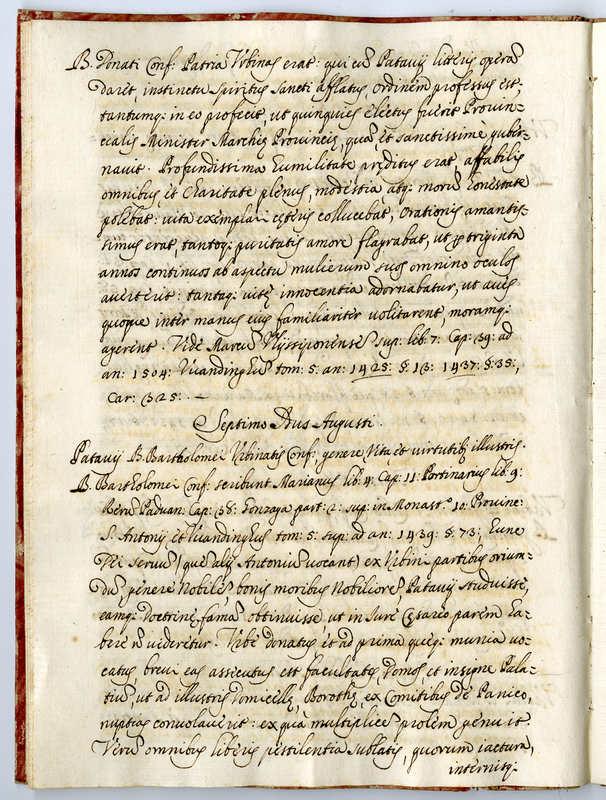 B. Donati Conf: Patria Urbinas erat: qui cũ Patavij litteris operã
daret, instinctu Spiritus Sancti afflatus, ordinem professus est,
tantumq: in eo profecit, ut quinquies electus fuerit Provin-
cialis Minister Marchię Provincię, quã et sanctissimè guber-
navit. Profundissima humilitate pręditus erat, affabilis
omnibus et charitate plenus, modestia atq: morũ honestate
polebat: vita exemplari cęteris collucebat, orationis amantis-
simus erat, tantoq: puritatis amore flagrabat, ut ꝑ triginta
annos continuos ab aspectu mulierum suos omnino oculos
averterit: tantaq: vitę innocentia adornabatur, ut aves
quoque inter manus eius familiariter volitarent, moramq:
agerent. Vide Marcũ Ulyssiponensẽ sup: lib: 7: Cap: 39: ad
an: 1504: Uvandinghũ tom: 5: an: 1425: §: 13: 1437: §: 35:,
Car: 325: —
Septimo Idus Augusti.
Patavij B. Bartholomei Urbinatis Conf: genere Vita et virtutibus illustris.
B. Bartholomei Conf: scribunt Marianus lib: 4: Cap: 11: Portinarius lib: 9:
Rerũ Paduan: Cap: 38: Gonzaga part: 2: sup: in Monast:º 10: Provinc:
S. Antonij, et Uvandinghus tom: 5: sup: ad an: 1439: §: 73:, hunc
Dei servũ (quẽ alij Antoniũ vocant) ex Urbini partibus oriun-
dũ, genere Nobilẽ, bonis moribus Nobiliorẽ, Patavij studuisse,
eamq: doctrinę famã obtinuisse, ut in Iure Cęsareo parem ha-
bere ñ videretur. Urbe donatus et ad prima quęq: munia vo-
catus, brevi eas assecutus est facultates, domos, et insigne Pala-
tiũ, ut ad illustris Domicellę, Dorothę, ex Comitibus de Panico,
nuptias convolaverit: ex quà multiplicẽ prolem genuit.
Verũ omnibus liberis pestilentia sublatis, quorum iactura,
internisq: